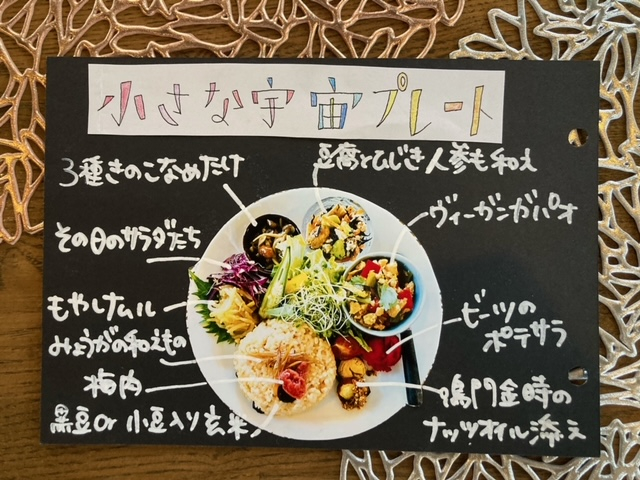 小さな宇宙プレート
3種きのこなめたけ
豆腐とひじき人参も和え
ヴィーガンガパオ
その日のサラダたち
もやしナムル
ビーツの
ポテサラ
みょうがの和えもの
梅肉
鳴門金時の
ナッツオイル添え
黒豆or小豆入り玄米